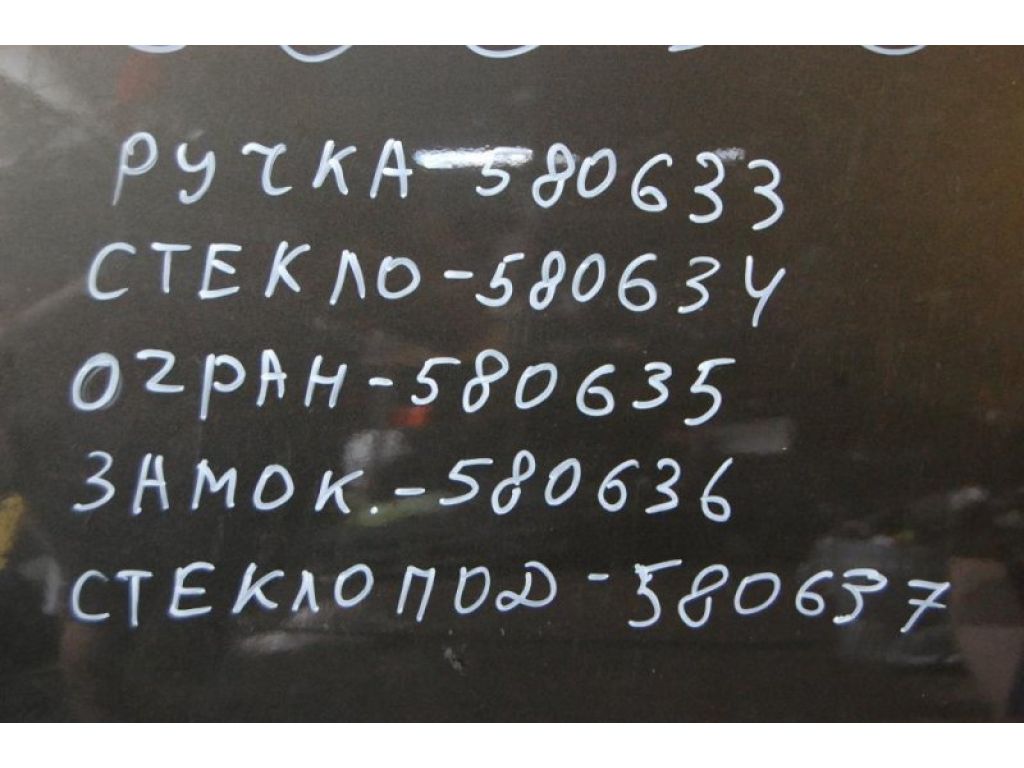 РУЧКА - 580633
СТЕКЛО - 580634
ОГРАН - 580635
ЗАМОК. - 580636
СТЕКЛОПОД - 580637